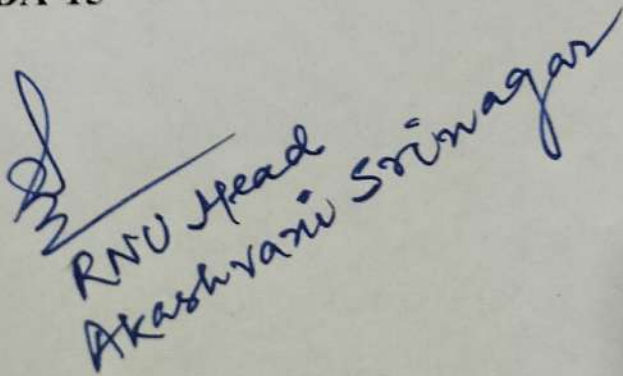 RNU Head
Akashvani Srinagar